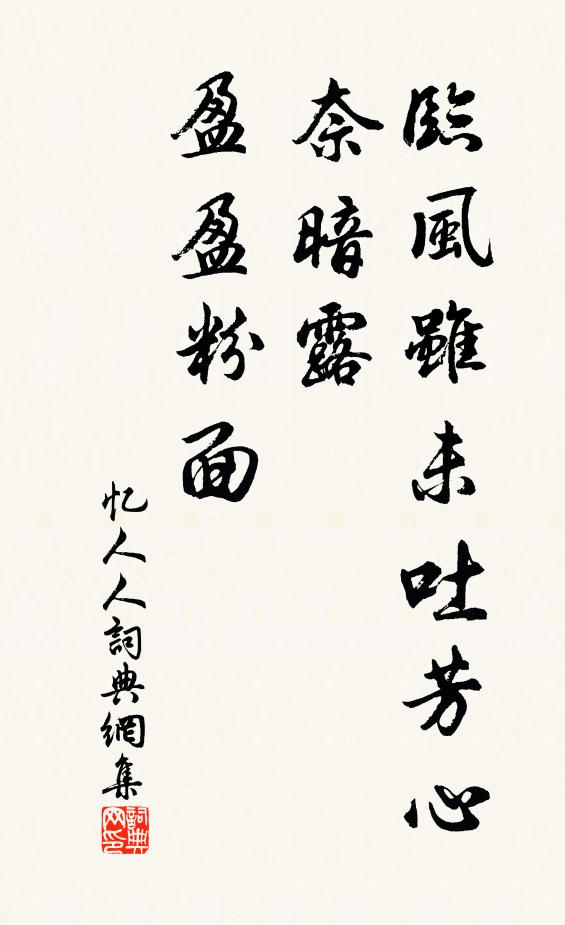 臨風雖未吐芳心
奈暗露
盈盈粉面
忆人人詞典網集
詞典
网印